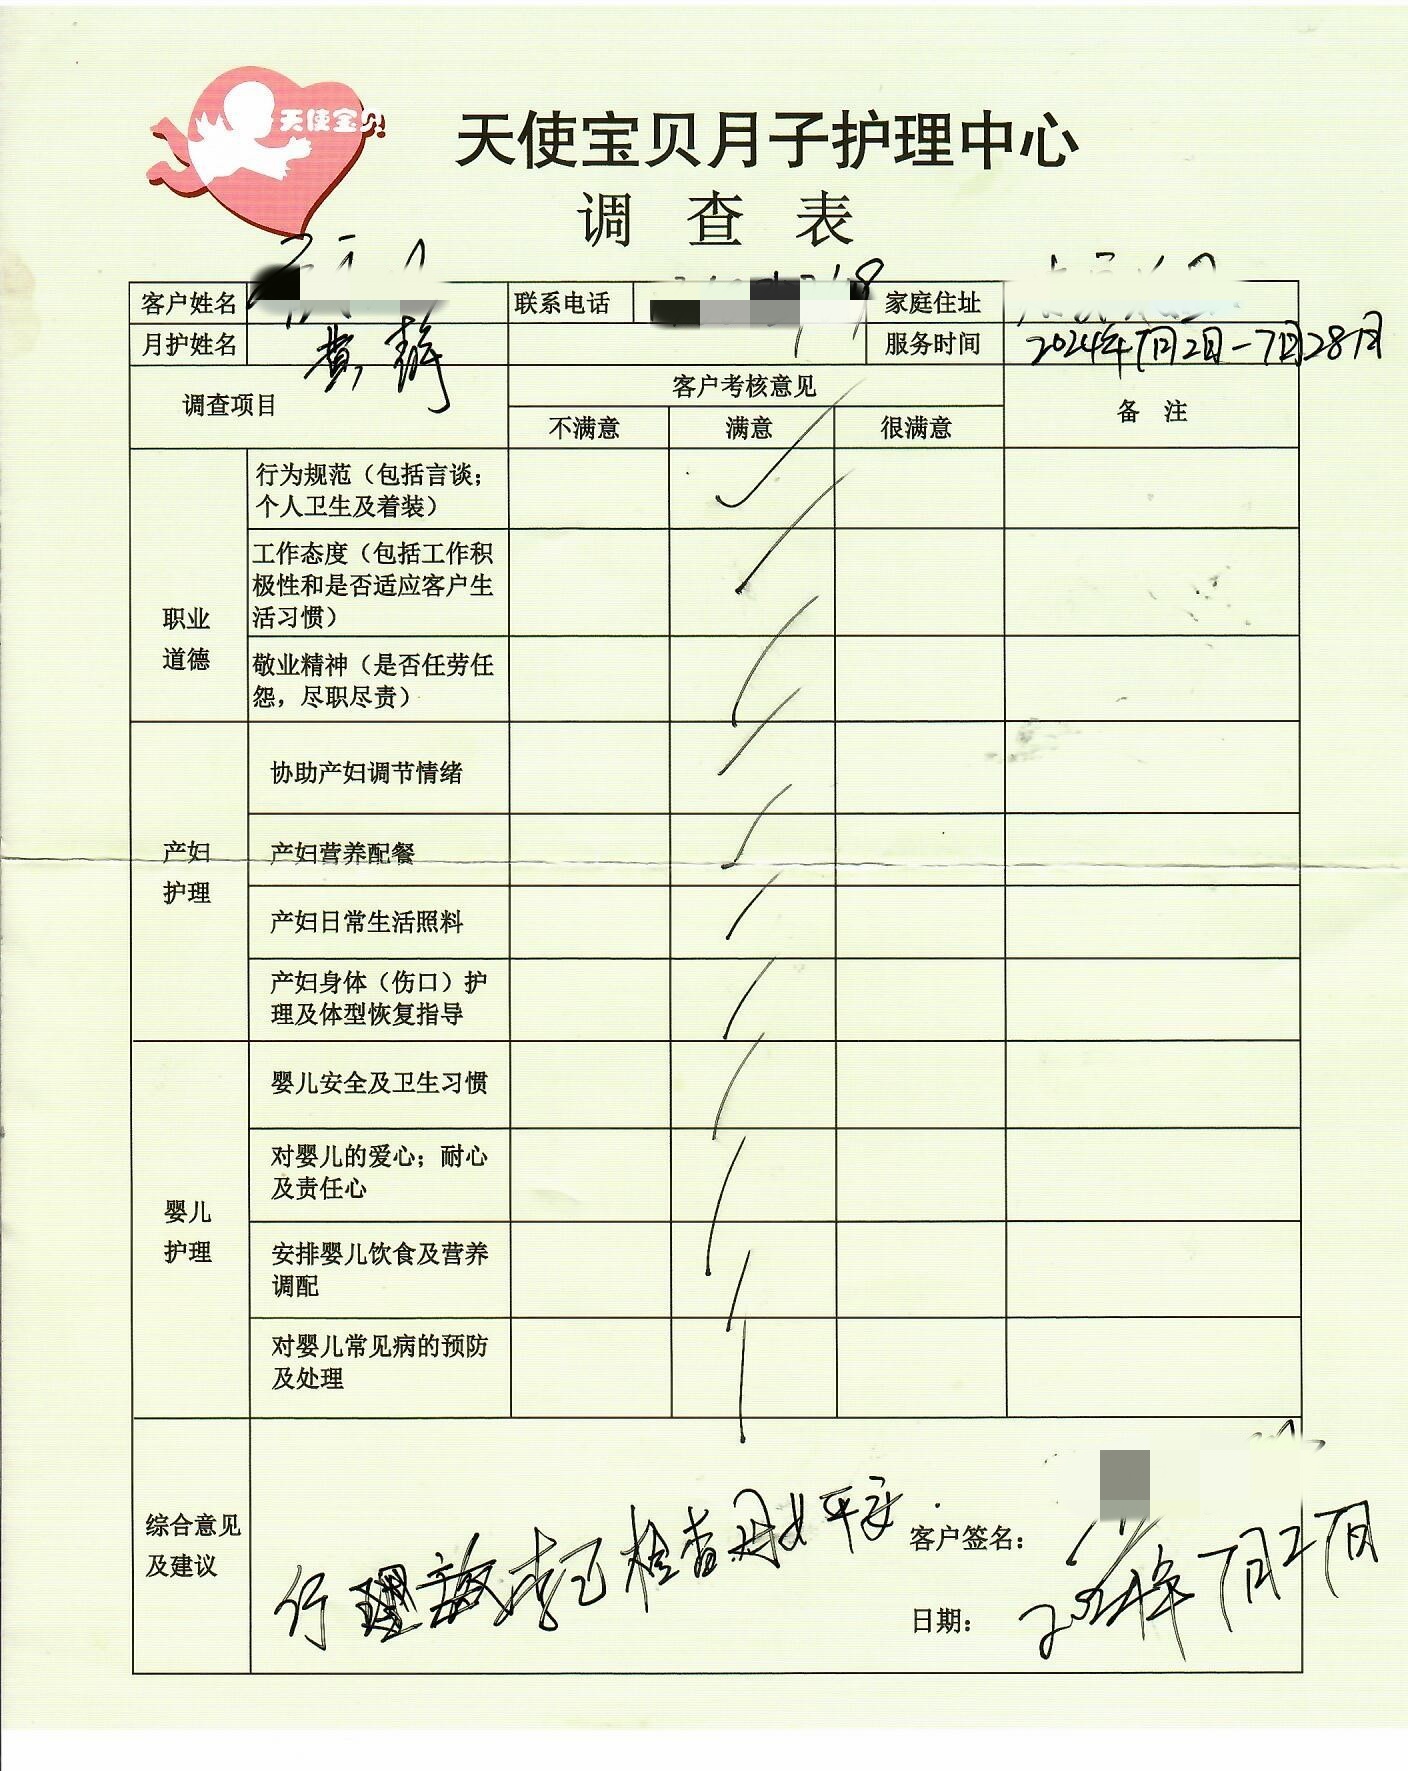 天使宝贝
天使宝贝月子护理中心
调 查 表
客户姓名 联系电话 家庭住址
月护姓名 黄静 服务时间 2024年7月2日-7月28日
调查项目 客户考核意见 备 注
不满意 满意 很满意
职业
道德
行为规范（包括言谈；
个人卫生及着装）
工作态度（包括工作积
极性和是否适应客户生
活习惯）
敬业精神（是否任劳任
怨，尽职尽责）
产妇
护理
协助产妇调节情绪
产妇营养配餐
产妇日常生活照料
产妇身体（伤口）护
理及体型恢复指导
婴儿
护理
婴儿安全及卫生习惯
对婴儿的爱心；耐心
及责任心
安排婴儿饮食及营养
调配
对婴儿常见病的预防
及处理
综合意见
及建议
行理 已检查母女平安.
客户签名：
日期： 2024年7月27日